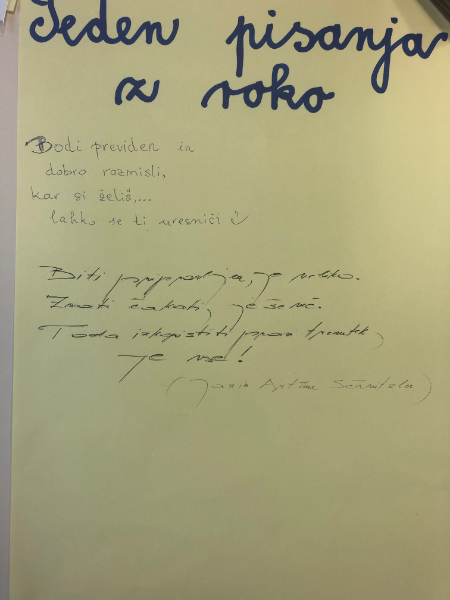 Teden pisanja
z roko
Bodi previden in
dobro razmisli,
kar si želiš,...
lahko se ti uresniči
Biti pripravljen, je veliko.
Znati čakati, je še več.
Toda izkoristiti pravi trenutek,
je vse!